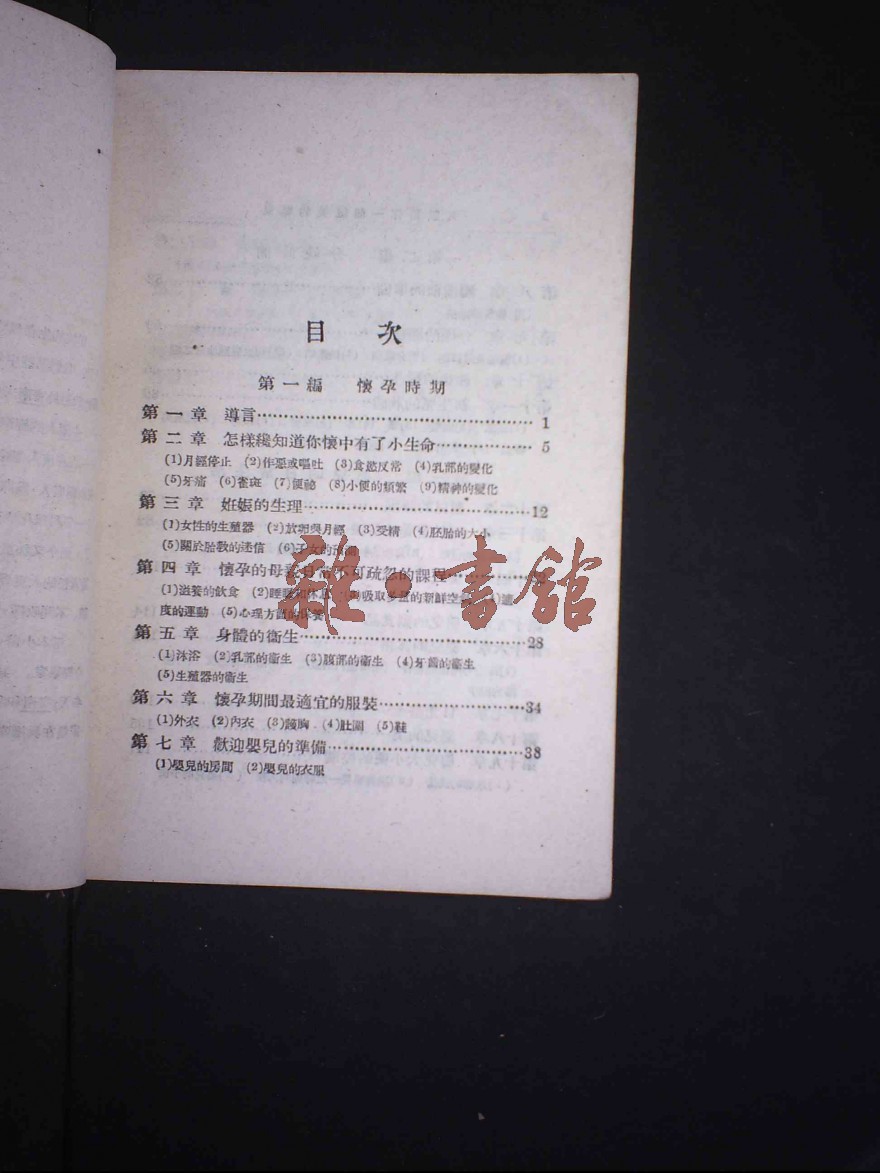 目次
第一編 懷孕時期
第一章 導言……1
第二章 怎樣纔知道你懷中有了小生命……5
(1)月經停止 (2)作惡或嘔吐 (3)食慾反常 (4)乳部的變化
(5)牙痛 (6)雀斑 (7)便祕 (8)小便的頻繁 (9)精神的變化
第三章 妊娠的生理……12
(1)女性的生殖器 (2)放卵與月經 (3)受精 (4)胚胎的大小
(5)關於胎教的迷信 (6)子女的
第四章 懷孕的母親日常不可疏忽的課程……
(1)滋養的飲食 (2)睡眠和休息 吸取多量的新鮮空氣 (4)適
度的運動 (5)心理方面的保養
第五章 身體的衞生……28
(1)沐浴 (2)乳部的衞生 (3)腹部的衞生 (4)牙齒的衞生
(5)生殖器的衞生
第六章 懷孕期間最適宜的服裝……34
(1)外衣 (2)內衣 (3)胸 (4)肚圍 (5)鞋
第七章 歡迎嬰兒的準備……38
(1)嬰兒的房間 (2)嬰兒的衣服
雜·書館